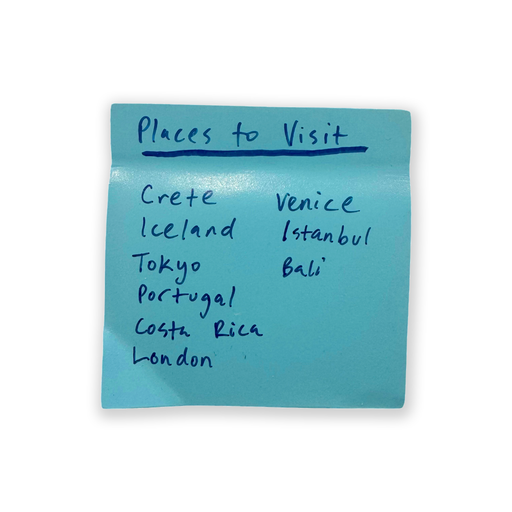 Places to Visit
Crete
Iceland
Tokyo
Portugal
Costa Rica
London
Venice
Istanbul
Bali